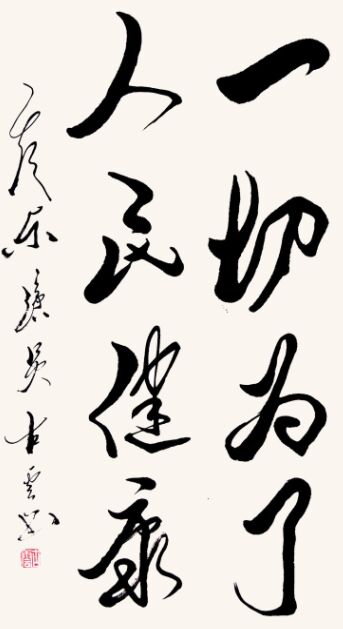 一切为了
人民健康